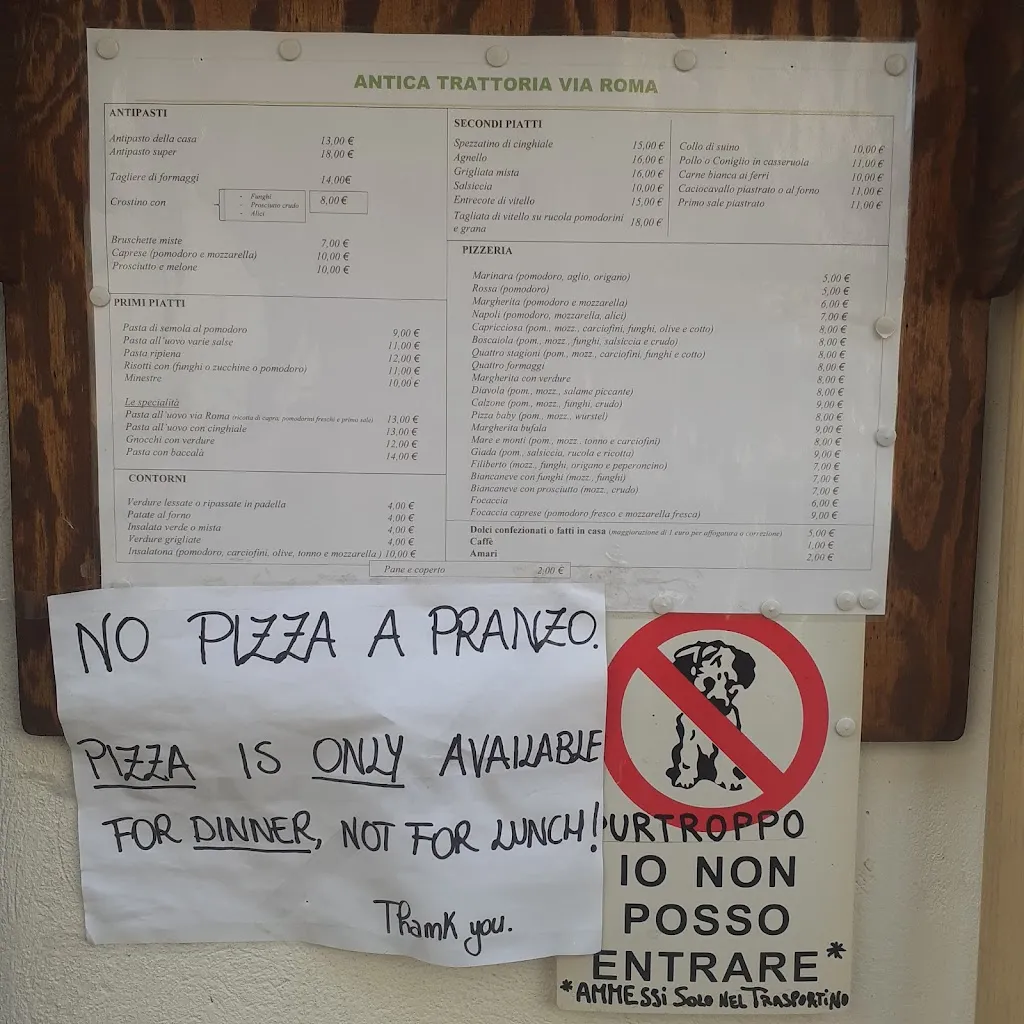 ANTICA TRATTORIA VIA ROMA
ANTIPASTI
Antipasto della casa 13,00 €
Antipasto super 18,00 €
Tagliere di formaggi 14,00€
Crostino con
- Funghi
- Prosciutto crudo
- Alici
8,00 €
Bruschette miste 7,00 €
Caprese (pomodoro e mozzarella) 10,00 €
Prosciutto e melone 10,00 €
PRIMI PIATTI
Pasta di semola al pomodoro 9,00 €
Pasta all'uovo varie salse 11,00 €
Pasta ripiena 12,00 €
Risotti con (funghi o zucchine o pomodoro) 11,00 €
Minestre 10,00 €
Le specialità
Pasta all'uovo via Roma (ricotta di capra, pomodorini freschi e primo sale) 13,00 €
Pasta all'uovo con cinghiale 13,00 €
Gnocchi con verdure 12,00 €
Pasta con baccalà 14,00 €
CONTORNI
Verdure lessate o ripassate in padella 4,00 €
Patate al forno 4,00 €
Insalata verde o mista 4,00 €
Verdure grigliate 4,00 €
Insalatona (pomodoro, carciofini, olive, tonno e mozzarella ) 10,00 €
SECONDI PIATTI
Spezzatino di cinghiale 15,00 €
Agnello 16,00 €
Grigliata mista 16,00 €
Salsiccia 10,00 €
Entrecote di vitello 15,00 €
Tagliata di vitello su rucola pomodorini
e grana 18,00 €
Collo di suino 10,00 €
Pollo o Coniglio in casseruola 11,00 €
Carne bianca ai ferri 10,00 €
Caciocavallo piastrato o al forno 11,00 €
Primo sale piastrato 11,00 €
PIZZERIA
Marinara (pomodoro, aglio, origano) 5,00 €
Rossa (pomodoro) 5,00 €
Margherita (pomodoro e mozzarella) 6,00 €
Napoli (pomodoro, mozzarella, alici) 7,00 €
Capricciosa (pom., mozz., carciofini, funghi, olive e cotto) 8,00 €
Boscaiola (pom., mozz., funghi, salsiccia e crudo) 8,00 €
Quattro stagioni (pom., mozz., carciofini, funghi e cotto) 8,00 €
Quattro formaggi 8,00 €
Margherita con verdure 8,00 €
Diavola (pom., mozz., salame piccante) 8,00 €
Calzone (pom., mozz., funghi, crudo) 9,00 €
Pizza baby (pom., mozz., wurstel) 8,00 €
Margherita bufala 9,00 €
Mare e monti (pom., mozz., tonno e carciofini) 8,00 €
Giada (pom., salsiccia, rucola e ricotta) 9,00 €
Filiberto (mozz., funghi, origano e peperoncino) 7,00 €
Biancaneve con funghi (mozz., funghi) 7,00 €
Biancaneve con prosciutto (mozz., crudo) 7,00 €
Focaccia 6,00 €
Focaccia caprese (pomodoro fresco e mozzarella fresca) 9,00 €
Dolci confezionati o fatti in casa (maggiorazione di 1 euro per affogatura e correzione) 5,00 €
Caffè 1,00 €
Amari 2,00 €
Pane e coperto 2,00 €
NO PIZZA A PRANZO.
PIZZA IS ONLY AVAILABLE
FOR DINNER, NOT FOR LUNCH!
Thank you.
PURTROPPO
IO NON
POSSO
ENTRARE*
*AMMESSI SOLO NEL TRASPORTINO